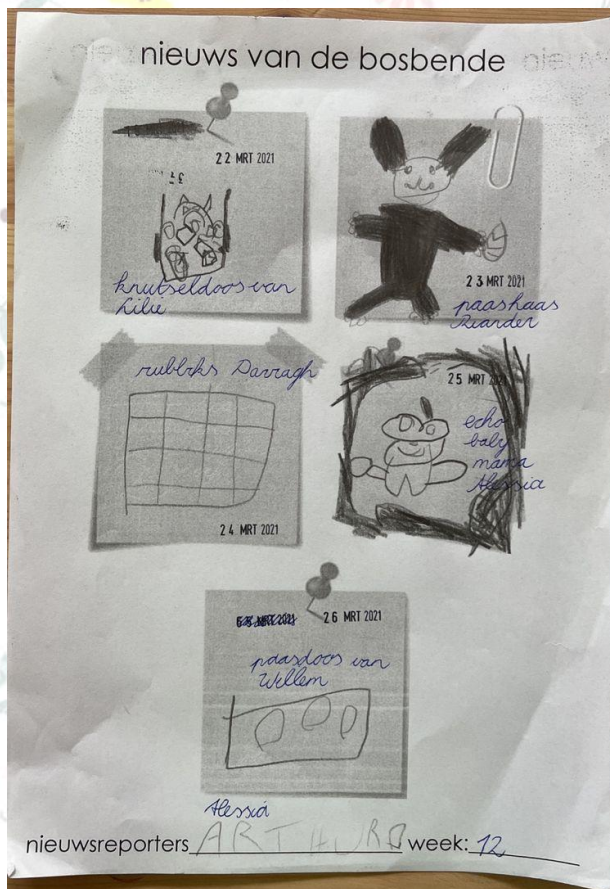 nieuws van de bosbende
22 MRT 2021
knutseldoos van
Lilie
23 MRT 2021
paashaas
rubbrks Darragh
24 MRT 2021
25 MRT
echo
baby
mama
Alessia
26 MRT 2021
paasdoos van
Willem
Alessia
nieuwsreporters ARTHUR week: 12